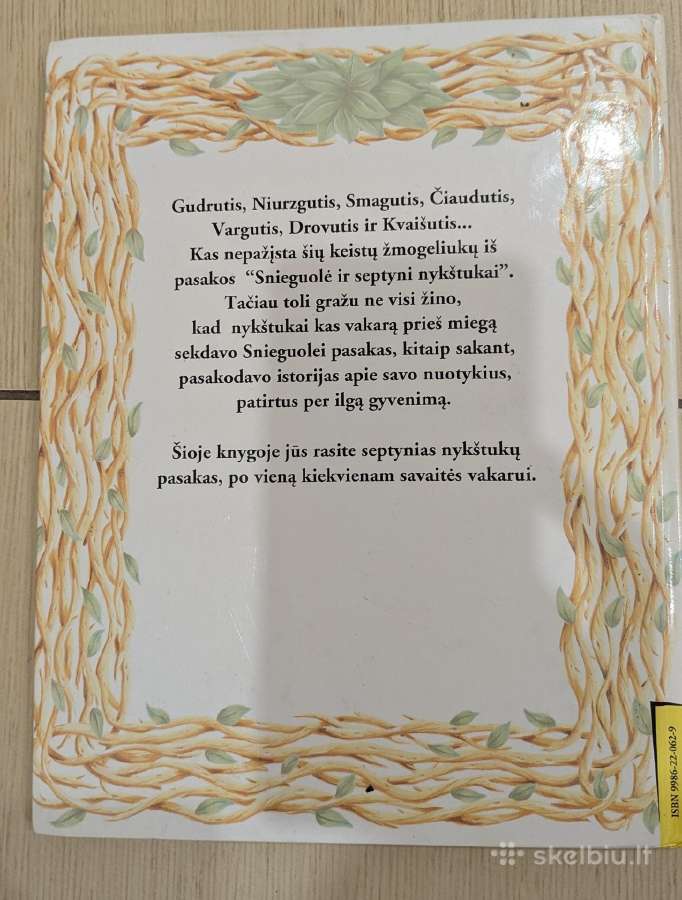 Gudrutis, Niurzgutis, Smagutis, Čiaudutis,
Vargutis, Drovutis ir Kvaišutis...
Kas nepažįsta šių keistų žmogeliukų iš
pasakos “Snieguolė ir septyni nykštukai”.
Tačiau toli gražu ne visi žino,
kad nykštukai kas vakarą prieš miegą
sekdavo Snieguolei pasakas, kitaip sakant,
pasakodavo istorijas apie savo nuotykius,
patirtus per ilgą gyvenimą.
Šioje knygoje jūs rasite septynias nykštukų
pasakas, po vieną kiekvienam savaitės vakarui.
ISBN 9986-22-062-9
skelbiu.lt